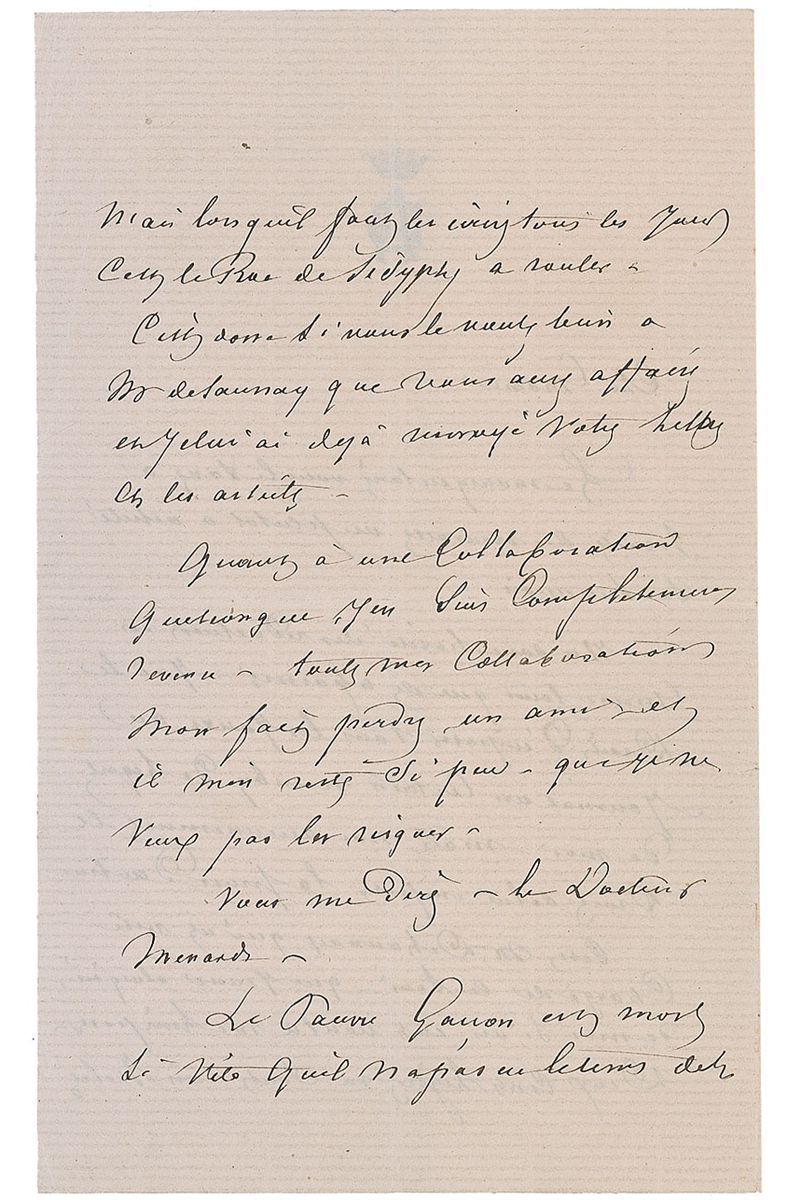 Mais lorsquil faut les écrire tous les jours
C'est le Roc de Sisyphe a rouler -
C'est donc si vous le voulez bien a
Mr delaunay que vous aurez affaire
et Je lui ai dejà renvoyé Votre Lettre
et les articles -
Quant à une Collaboration
Quelconque, J'en Suis Completement
revenu - toutes mes Collaborations
M'on fait perdre un ami et
il m'en reste Si peu - que je ne
Veux pas les risquer -
Vous me Direz - le Docteur
Menard -
Le Pauvre Garcon est mort
Si Vite Qu'il N'a pas eu le tems de